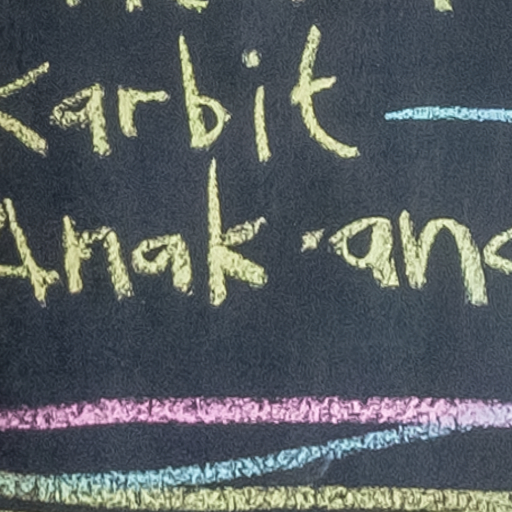 Karbit
Anak-ana